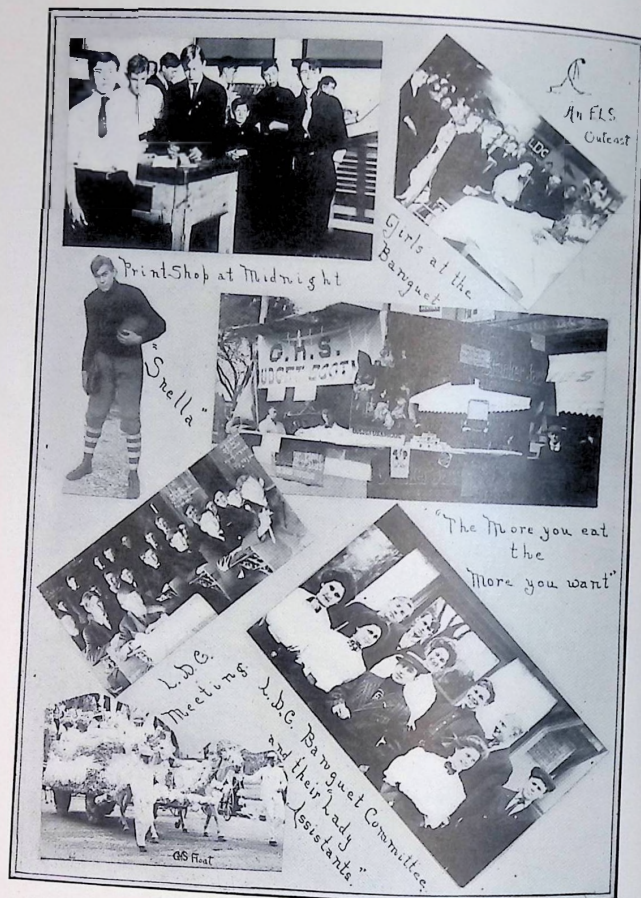 An F.L.S.
Outcast
LDC
Girls at the
Banquet
Print-Shop at Midnight
"Snella"
G.H.S.
"The More you eat
the
More you want"
L.D.C.
Meeting
L.D.C. Banquet Committee
and their "Lady
Assistants."
GHS Float